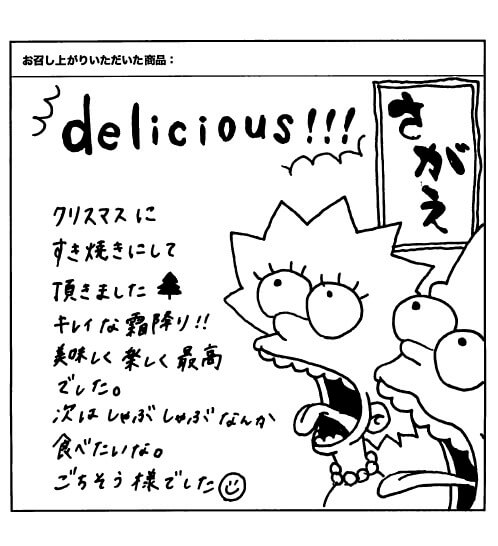 お召し上がりいただいた商品：
delicious!!!
さがえ
クリスマスに
すき焼きにして
頂きました
キレイな霜降り!!
美味しく楽しく最高
でした。
次はしゃぶしゃぶなんか
食べたいな。
ごちそう様でした